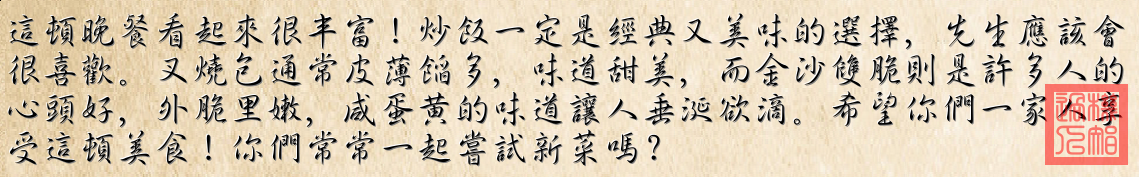 這頓晚餐看起來很丰富！炒飯一定是經典又美味的選擇，先生應該會
很喜歡。叉燒包通常皮薄餡多，味道甜美，而金沙雙脆則是許多人的
心頭好，外脆里嫩，咸蛋黄的味道讓人垂涎欲滴。希望你們一家人享
受這頓美食！你們常常一起嘗試新菜嗎？